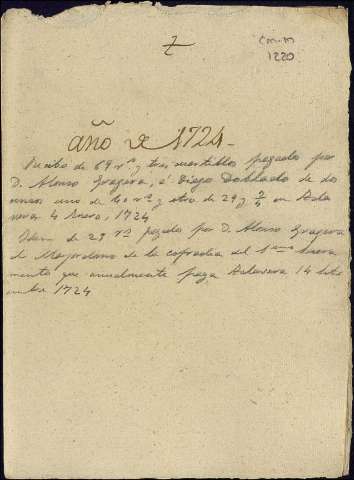 Z
CM-M
1220
año de 1724-
Recibo de 69 rs y tres cuartillos pagados por
D. Alonso Gragera, á Diego Doblado de dos
uno de 40 rs y otro de 29 y 3/4 en Tala
vera 4 Enero, 1724
Idem de 29 rs pagados por D. Alonso Gragera
al Mayordomo de la cofradia del Smo Sacra
mento que anualmente paga Talavera 14 
1724